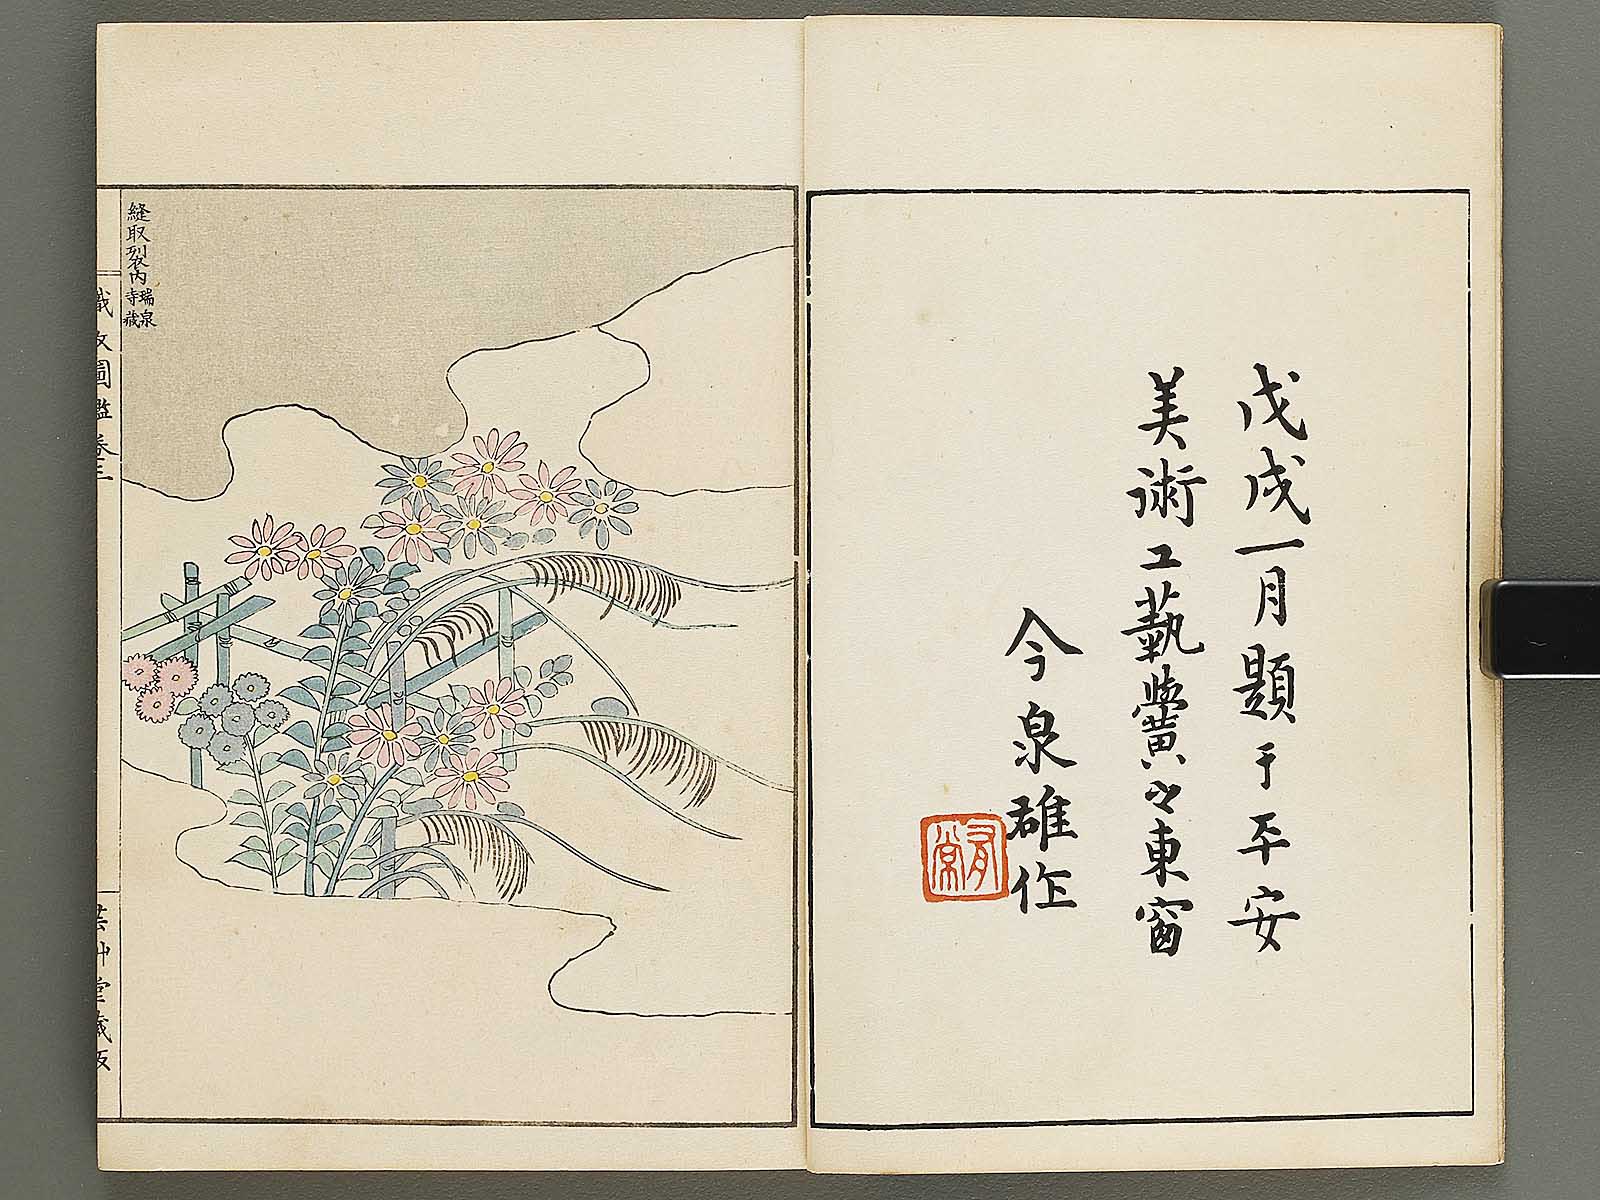 戊戌一月題于平安
美術工藝黌之東窗
今泉雄作
有常
縫取裂内
瑞泉
寺藏
織文圖鑑卷三
芸艸堂藏版